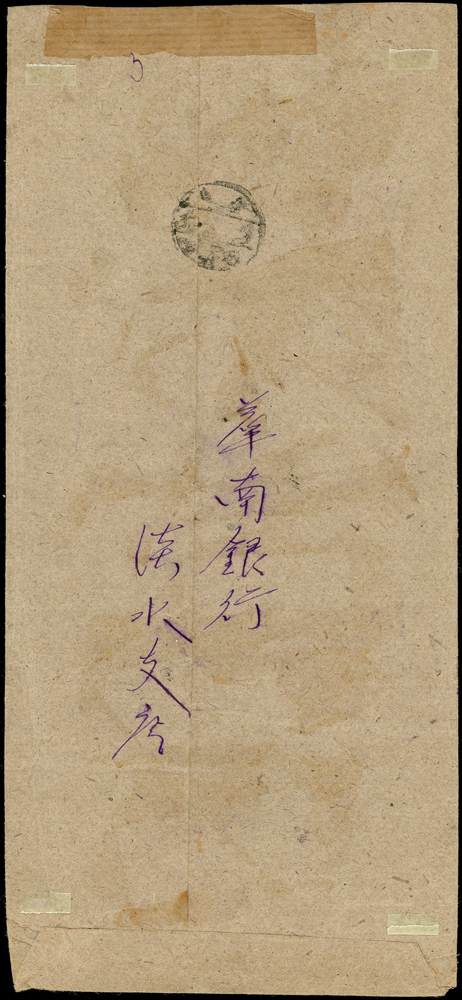 華南銀行
淡水支店